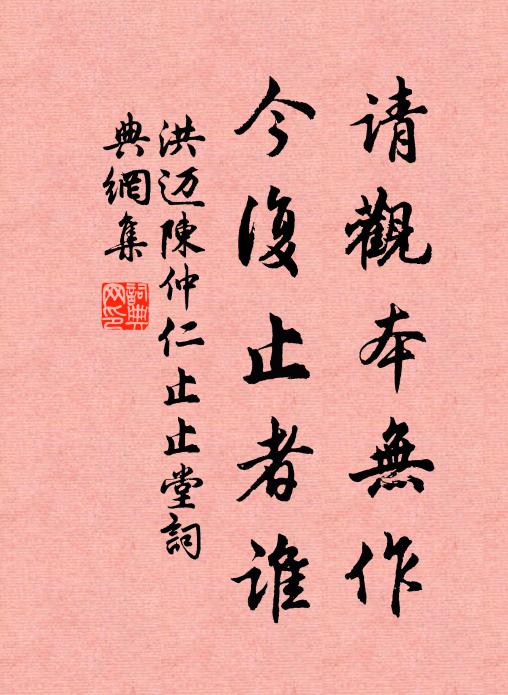 请觀本無作
今復止者誰
洪迈陳仲仁止止堂詞
典網集
詞典网印